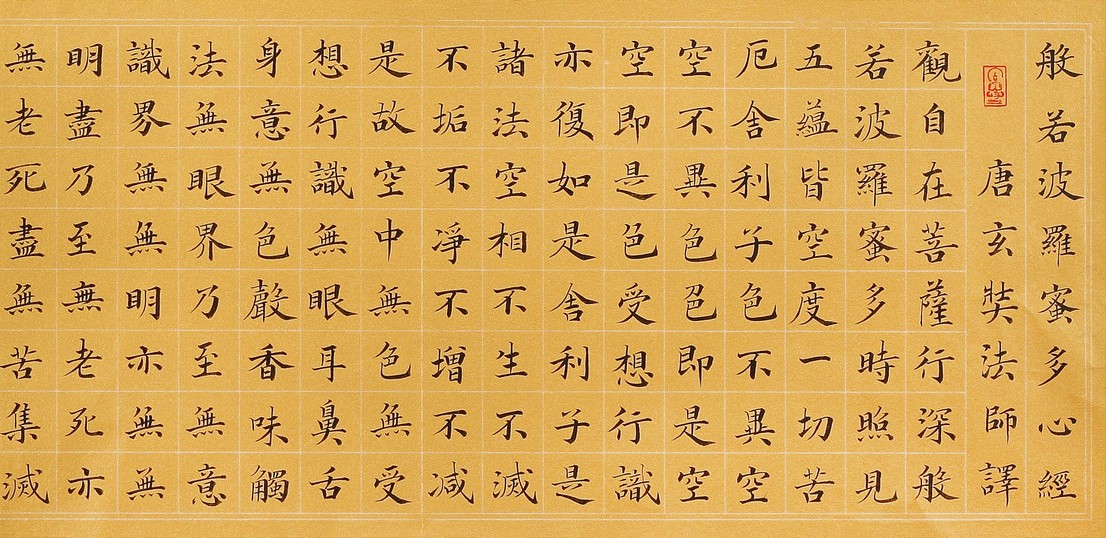 般若波羅蜜多心經
唐玄奘法師譯
觀自在菩薩行深般
若波羅蜜多時照見
五蘊皆空度一切苦
厄舍利子色不異空
空不異色色即是空
空即是色受想行識
亦復如是舍利子是
諸法空相不生不滅
不垢不凈不增不减
是故空中無色無受
想行識無眼耳鼻舌
身意無色聲香味觸
法無眼界乃至無意
識界無無明亦無無
明盡乃至無老死亦
無老死盡無苦集滅